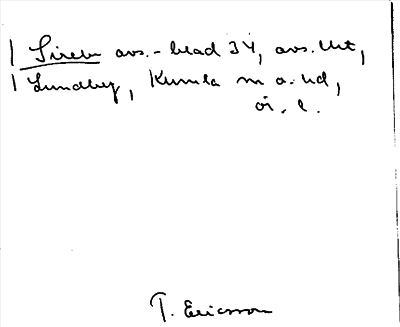 | Siren avs.-blad 34, avs. Ut,
| Lundby, Kumla m a. hd,
ör. l.
T. Ericsson